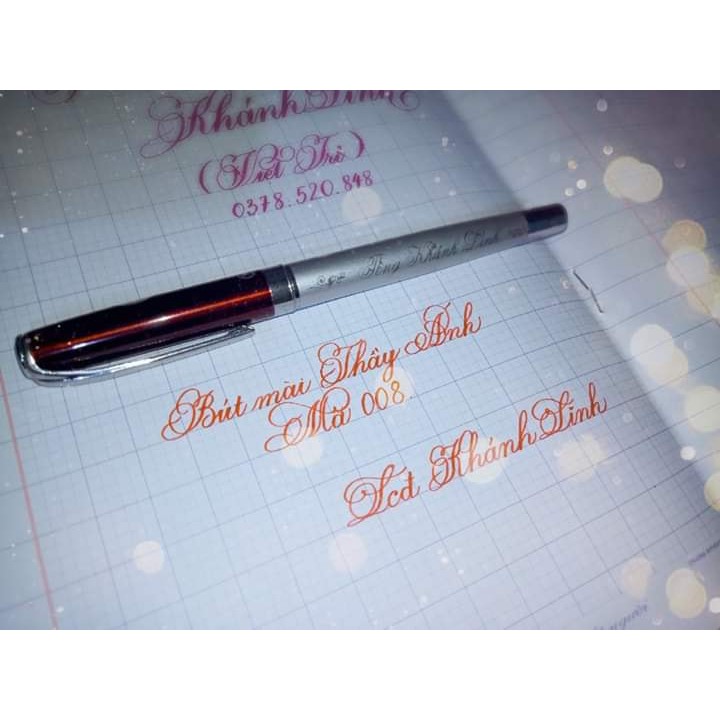 Khánh Linh
(Việt Trì)
0378.520.848
Tòng Khánh Linh
Bút mài Thầy Ánh
Mã 008.
Lcđ Khánh Linh